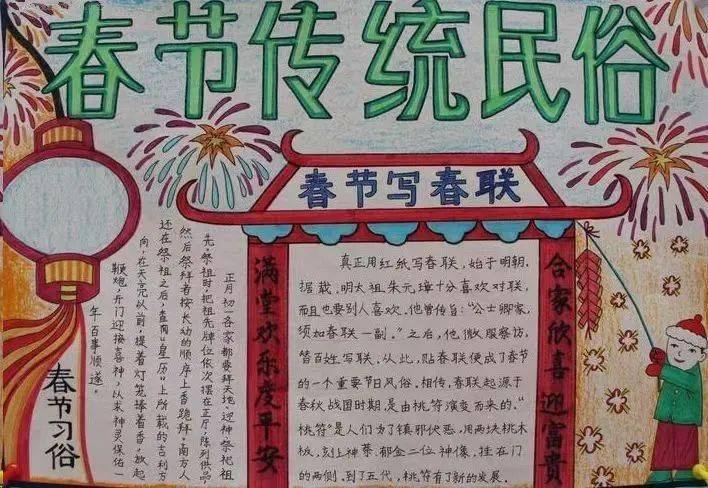 春节传统民俗
春节写春联
满堂欢乐度平安
合家欣喜迎富贵
真正用红纸写春联，始于明朝.
据载，明太祖朱元璋十分喜欢对联，
而且也要别人喜欢.他曾传旨："公士卿家，
须加春联一副。"之后，他微服察访，
替百姓写联.从此，贴春联便成了春节
的一个重要节日风俗.相传，春联起源于
春秋战国时期，是由桃符演变而来的."
桃符"是人们为了镇邪伏恶，用两块桃木
板，刻上神荼、郁金二位神像，挂在门
的两侧.到了五代，桃符有了新的发展.
正月初一各家都要拜天地、迎神、祭祀祖
先。祭祖时，把祖先牌位依次摆在正厅，陈列供品
然后祭拜者按长幼的顺序上香跪拜。南方人
还在祭祖之后，查阅"皇历"上所载的吉利方
向，在天亮以前，提着灯笼捧着香，放起
鞭炮，开门迎接喜神，以求神灵保佑一
年百事顺遂。
春节习俗